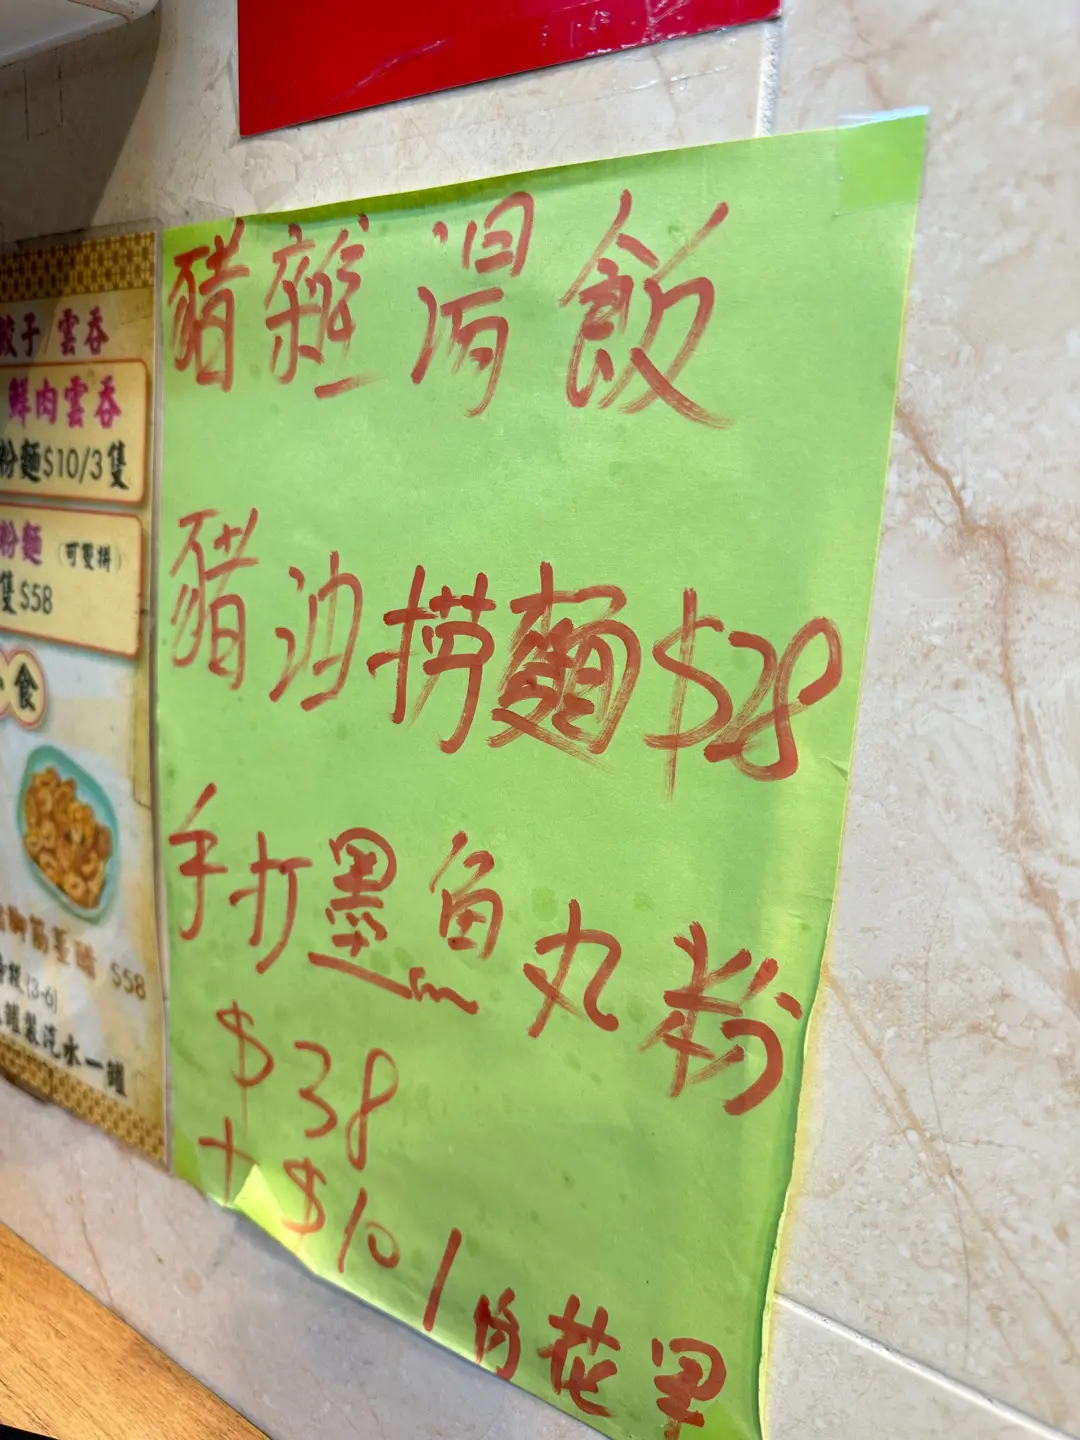 子/雲吞
鮮肉雲吞
粉麵$10/3隻
粉麵（可雙拼）
隻$58
食
$58
(3-6)
罐裝汽水一罐
豬雜湯飯
豬油捞麵$28
手打墨魚丸粉
$38
+$10/
花甲